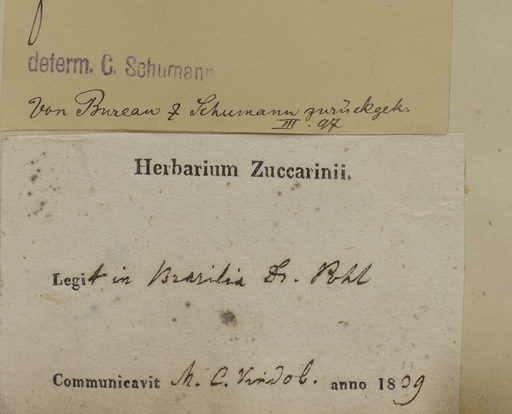 determ. C. Schumann
Von Bureau & Schumann zurückgek.
III. 97
Herbarium Zuccarinii.
Legit in Brasilia Dr. Pohl
Communicavit M. C. Vindob. anno 1839